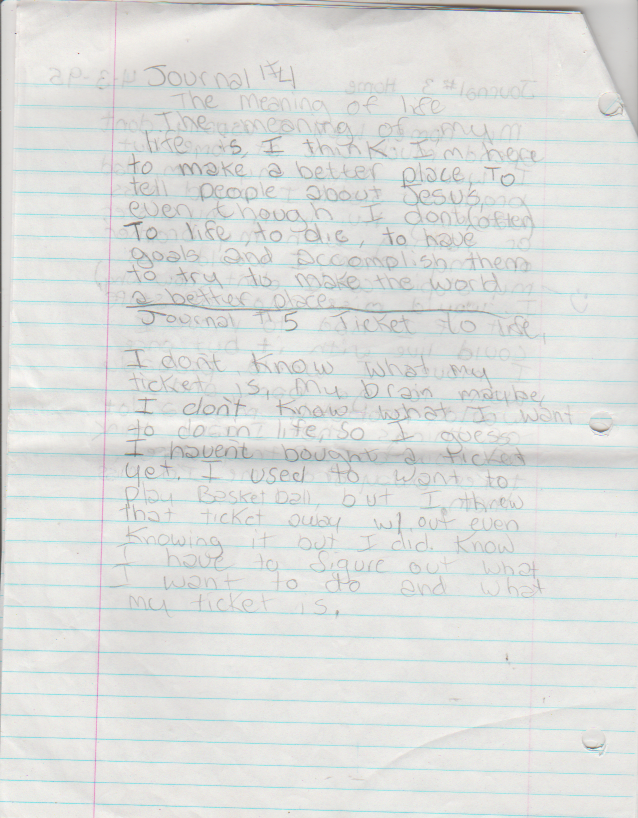 Journal #4
The meaning of life
The meaning of my
life is, I think I'm here
to make a better place, To
tell people about Jesus,
even though I dont (often)
To life, to die, to have
goals and accomplish them
to try to make the world
a better place.
Journal #5 Ticket to life,
I don't know what my
ticket is, my brain maybe,
I don't know what I want
to do in life, so I guess
I havent bought a ticket
yet. I used to want to
play Basketball, but I threw
that ticket away w/out even
knowing it but I did. Know
I have to figure out what
I want to do and what
my ticket is.